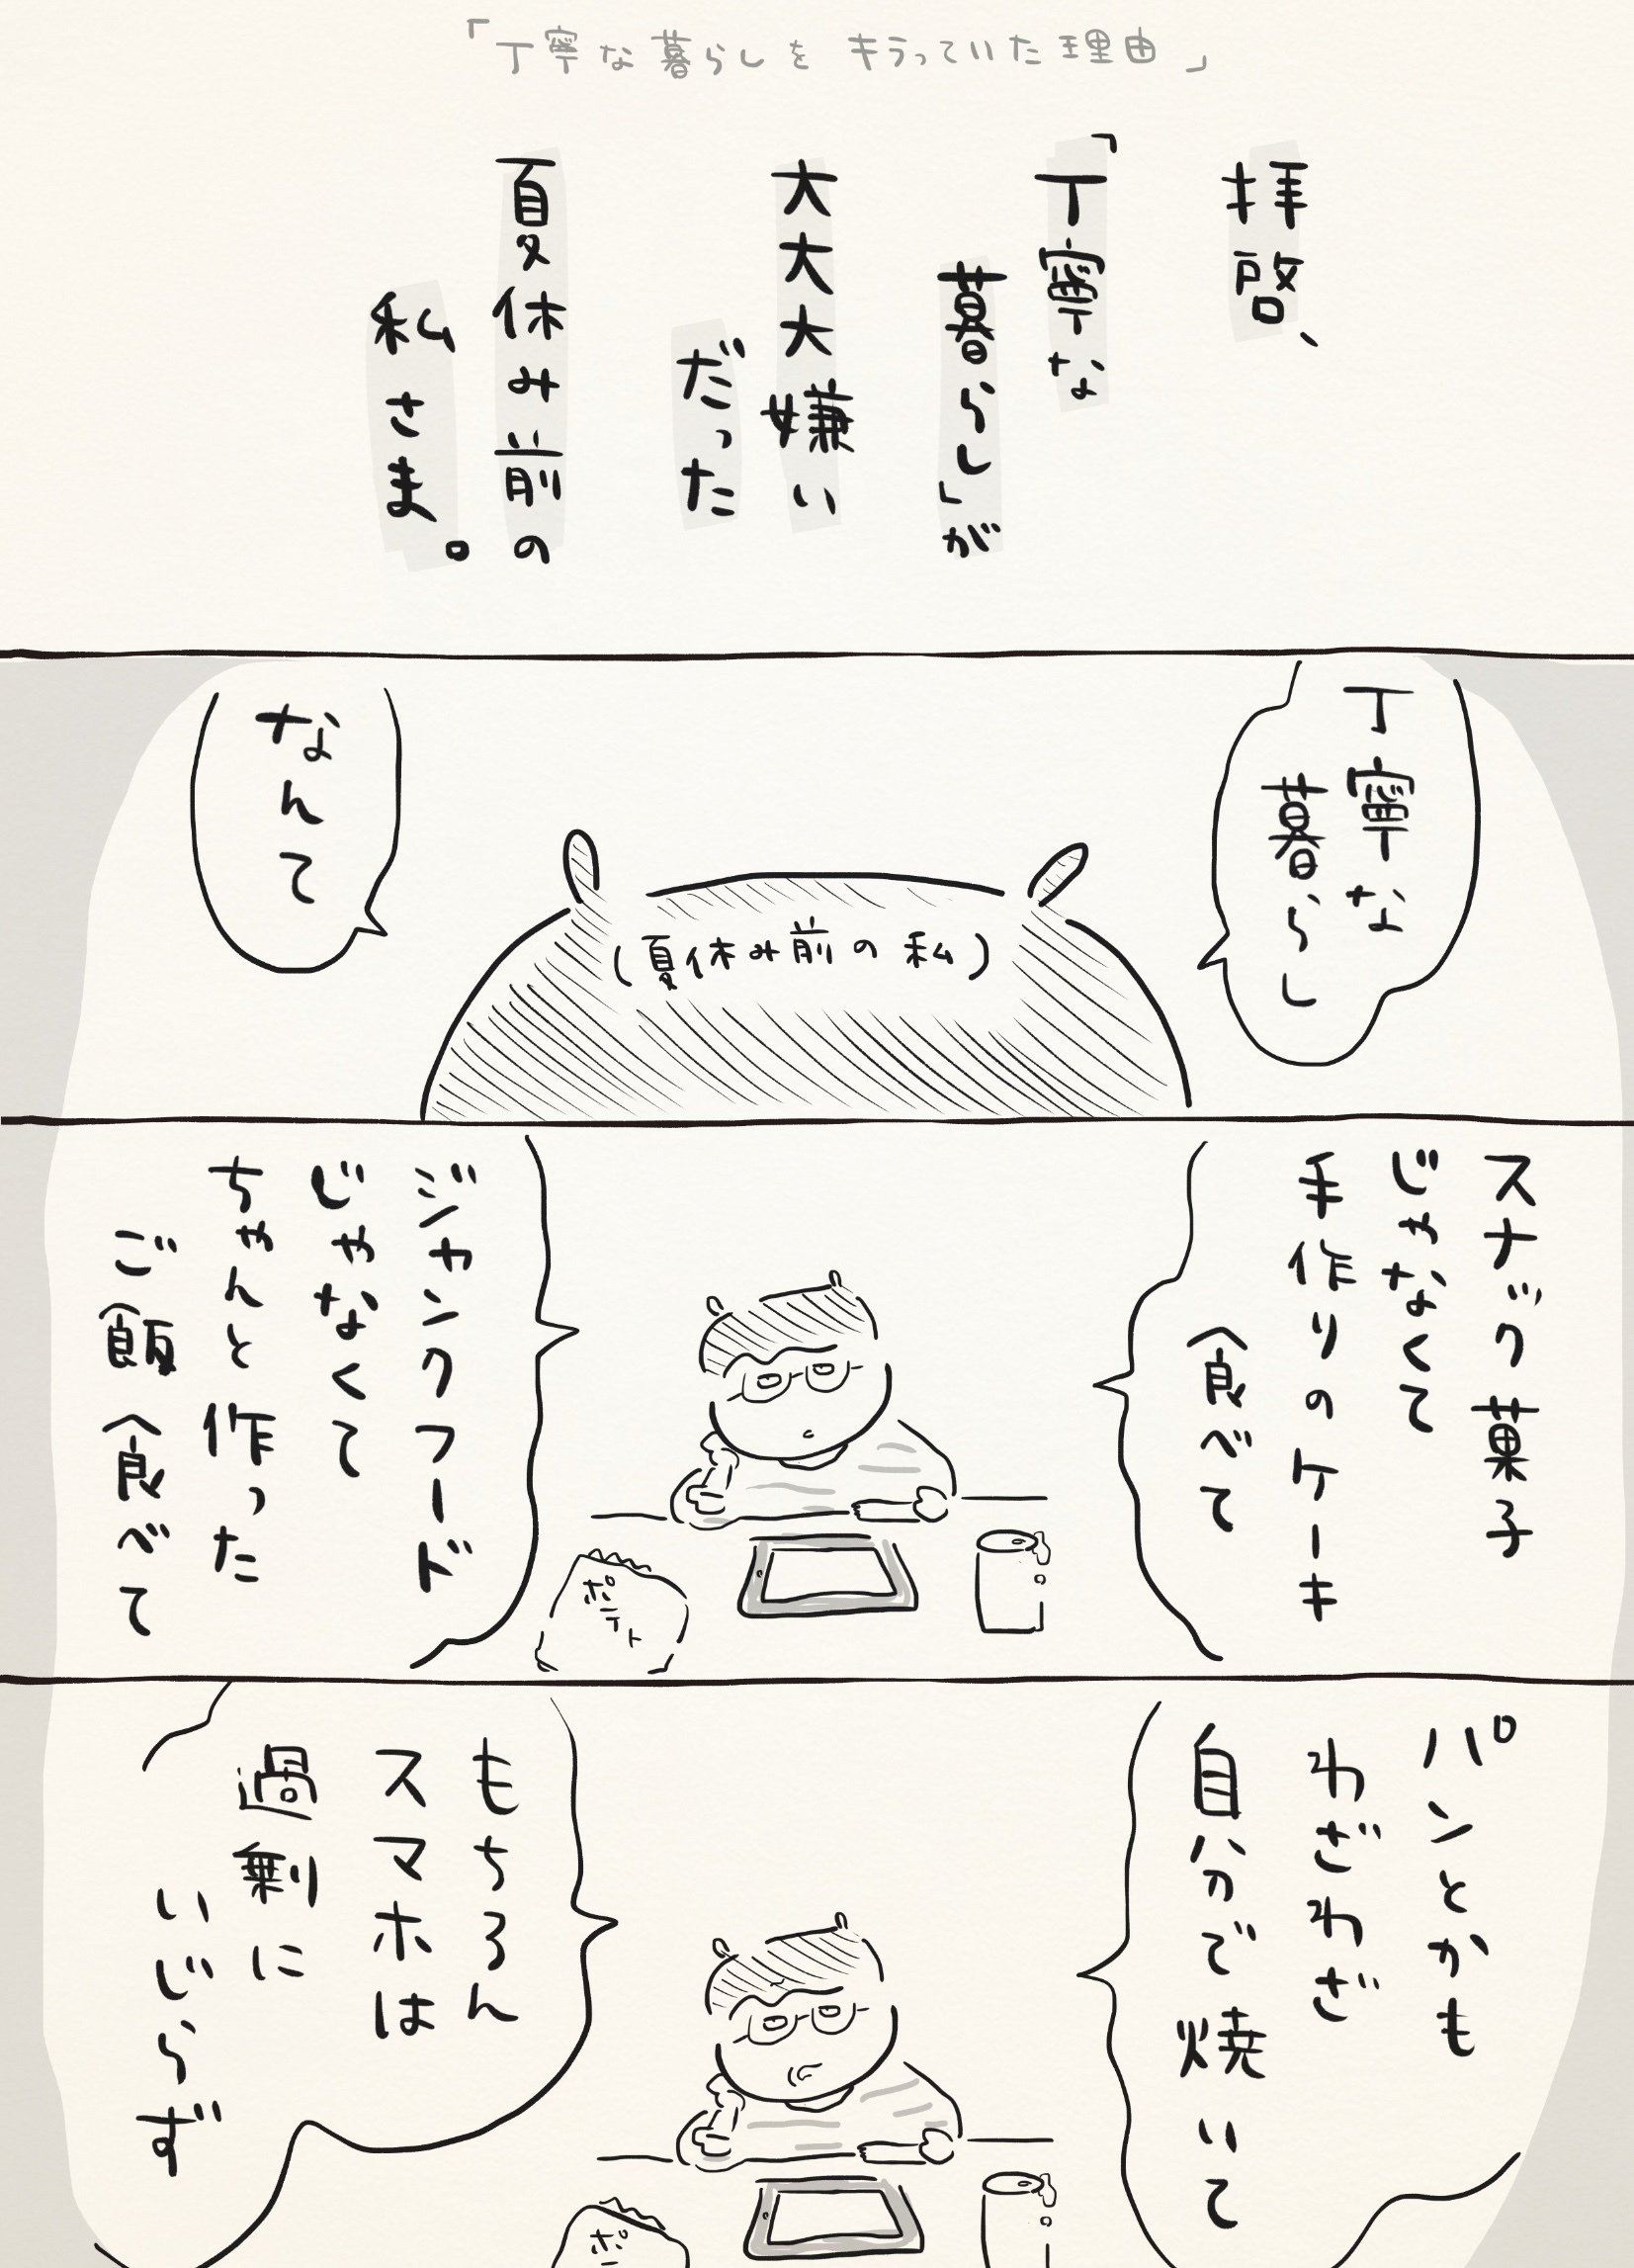 「丁寧な暮らしをキラっていた理由」
拝啓、
「丁寧な
暮らし」が
大大大嫌い
だった
夏休み前の
私さま。
丁寧な
暮らし
なんて
(夏休み前の私)
スナック菓子
じゃなくて
手作りのケーキ
食べて
ジャンクフード
じゃなくて
ちゃんと作った
ご飯食べて
ポテト
パンとかも
わざわざ
自分で焼いて
もちろん
スマホは
過剰に
いじらず
ポテ